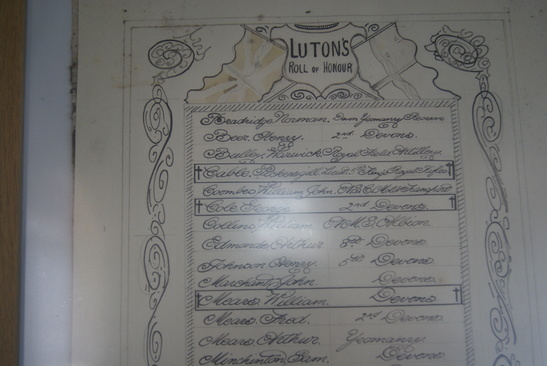 LUTON'S
ROLL OF HONOUR
Beadridge, Norman. Yeomanry
Beer, Henry. 2nd Devons.
Bulley, Warwick, Royal Field Artillery.
Cabble, Lieut. Royal
Coombes, William, John.
Cole, George. 2nd Devons.
Collins, William.
Edmonds, Arthur. Devons
Johnson, Henry. Devons
Marchant, John. Devons
Mears, William. Devons
Mears, Fred. 2nd Devons
Mears, Arthur. Yeomanry.
Minchinton, Sam. Devons